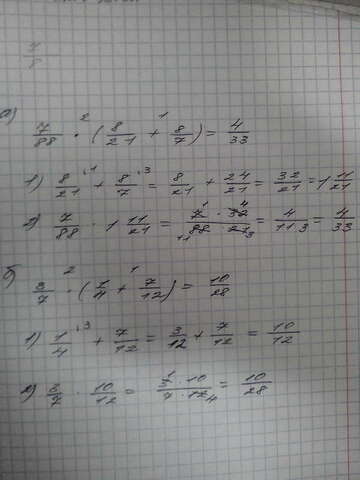 7/8
а) 7/88 · (8/21 + 8/7) = 4/33
1) 8/21 + 8/7 = 8/21 + 24/21 = 32/21 = 1 11/21
2) 7/88 · 1 11/21 = 7 · 32 / 88 · 21 = 4/11·3 = 4/33
б) 3/7 · (1/4 + 7/12) = 10/28
1) 1/4 + 7/12 = 3/12 + 7/12 = 10/12
2) 3/7 · 10/12 = 3 · 10 / 7 · 12 = 10/28